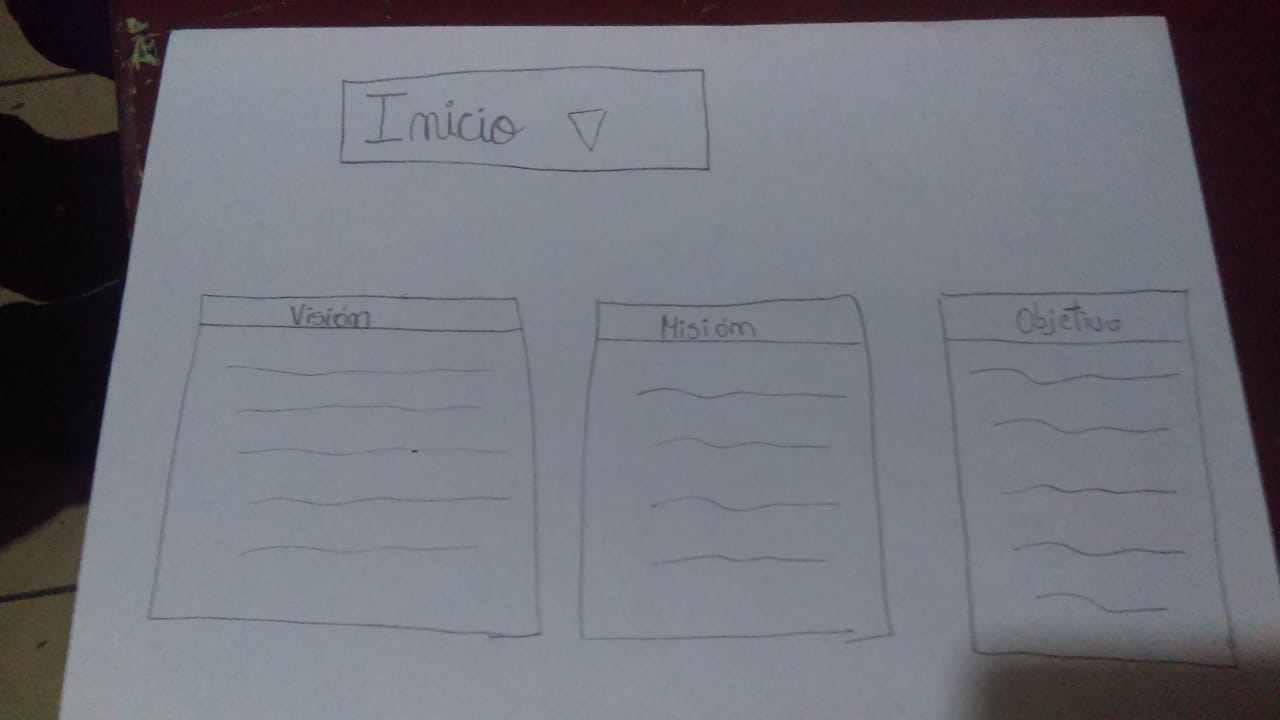 Inicio
Visión
Misión
Objetivo